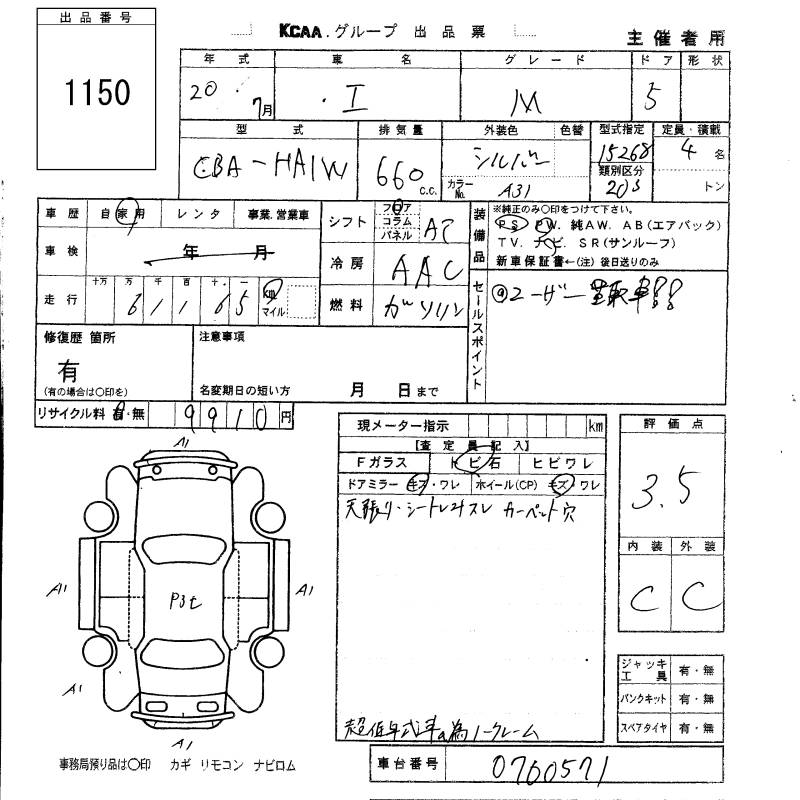 出品番号
1150
KCAA.グループ 出品票
主催者用
年式 車名 グレード ドア 形状
20 7月 I M 5
型式 排気量 外装色 色替 型式指定 定員・積載
CBA-HA1W 660 c.c. シルバー 15268 4名
カラーNo. A31 類別区分 203 トン
車歴 自家用 レンタ 事業.営業車
シフト フロア コラム パネル AT
車検 年 月
冷房 AAC
走行 十万 万 千 百 十 一
61165 km マイル
燃料 ガソリン
装備品
※純正のみ○印をつけて下さい。
PS PW. 純AW. AB(エアバック)
TV. ナビ. SR(サンルーフ)
新車保証書←(注)後日送りのみ
セールスポイント
ユーザー買取車!!
修復歴 箇所
有
(有の場合は○印を)
注意事項
名変期日の短い方 月 日まで
リサイクル料 有・無 9910円
現メーター指示 km
【査定員記入】
Fガラス トビ石 ヒビワレ
ドアミラー キズ・ワレ ホイール(CP) キズ ワレ
天張り・シートレヌスレ カーペット穴
超低年式車の為ノークレーム
評価点
3.5
内装 外装
C C
ジャッキ工具 有・無
パンクキット 有・無
スペアタイヤ 有・無
A1
A1
A1
P3t
A1
A1
事務局預り品は○印 カギ リモコン ナビロム
車台番号 0760571